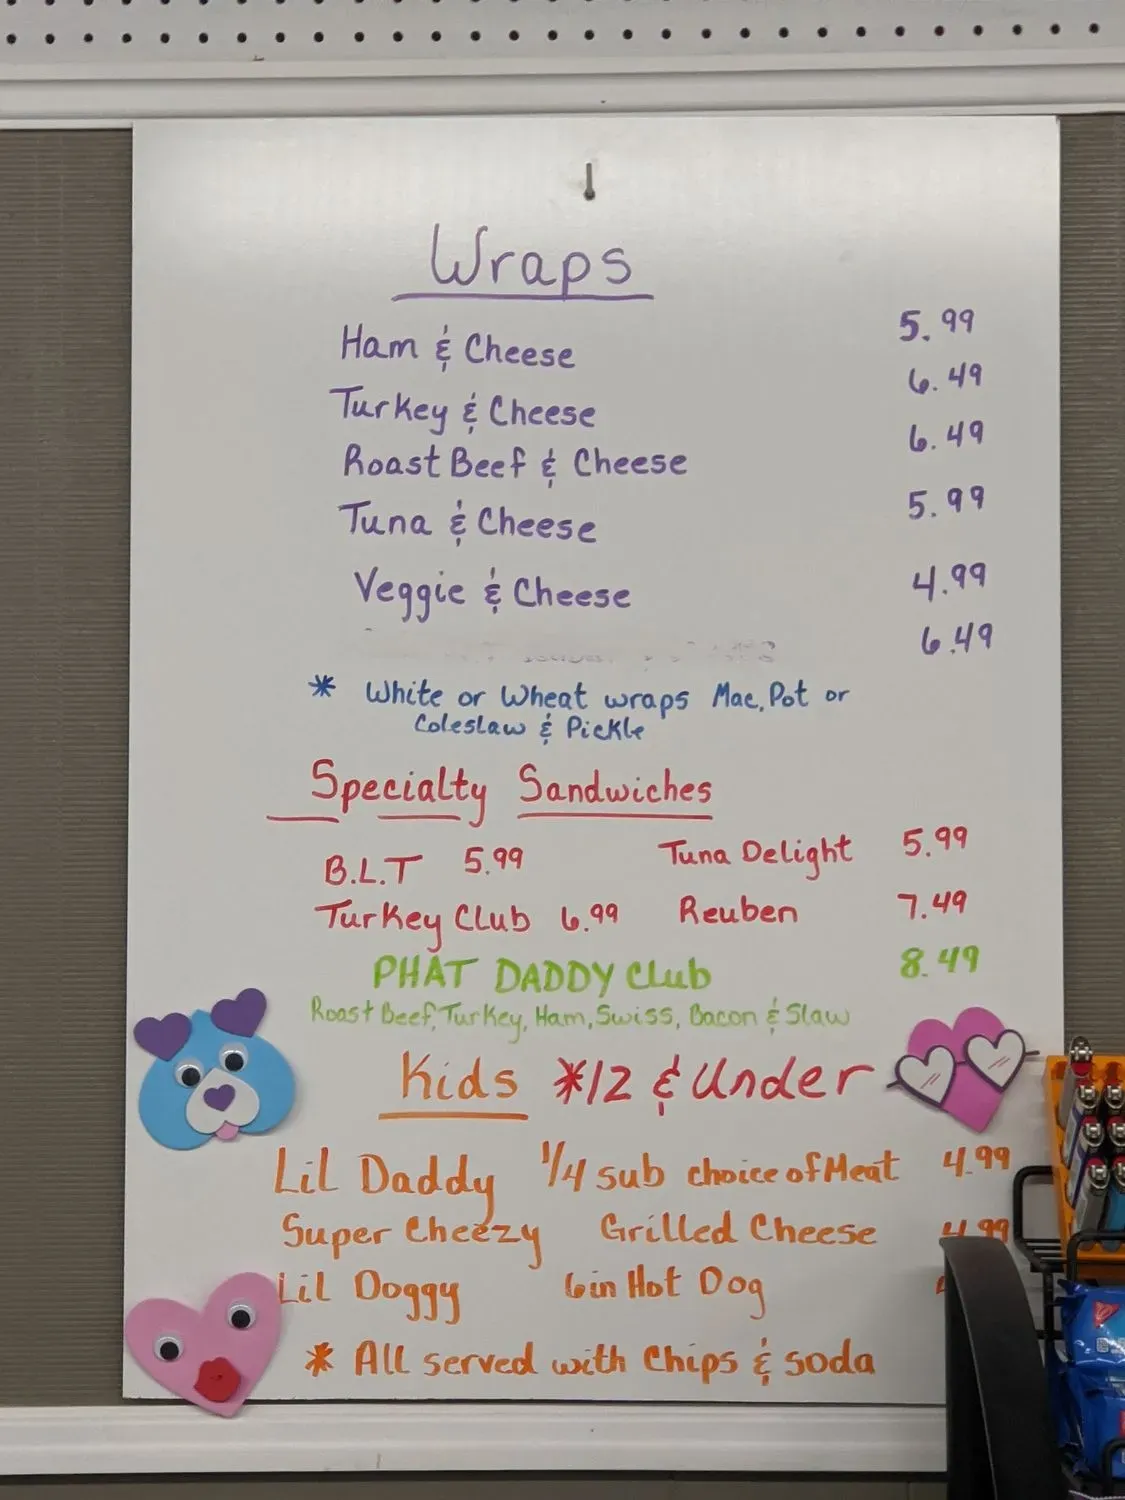 Wraps
Ham & Cheese 5.99
Turkey & Cheese 6.49
Roast Beef & Cheese 6.49
Tuna & Cheese 5.99
Veggie & Cheese 4.99
6.49
* White or Wheat wraps Mac, Pot or
Coleslaw & Pickle
Specialty Sandwiches
B.L.T 5.99 Tuna Delight 5.99
Turkey Club 6.99 Reuben 7.49
PHAT DADDY Club 8.49
Roast Beef, Turkey, Ham, Swiss, Bacon & Slaw
Kids *12 & Under
Lil Daddy 1/4 sub choice of Meat 4.99
Super Cheezy Grilled Cheese 4.99
Lil Doggy 6in Hot Dog
* All served with Chips & soda